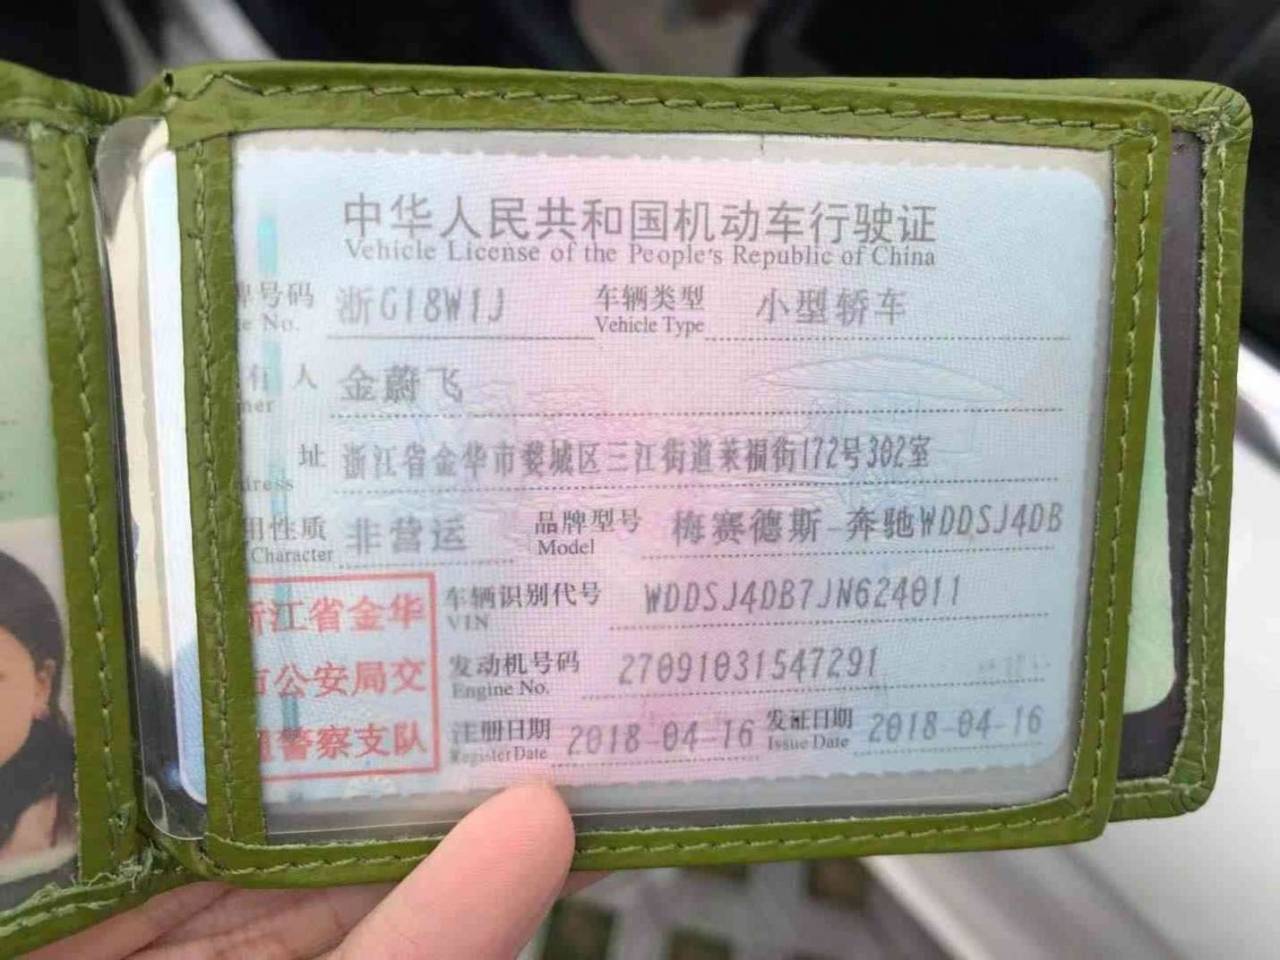 中华人民共和国机动车行驶证
Vehicle License of the People's Republic of China
号码 浙G18W1J 车辆类型 小型轿车
No. Vehicle Type
人 金蔚飞
址 浙江省金华市婺城区三江街道莱福街172号302室
用性质 非营运 品牌型号 梅赛德斯-奔驰WDDSJ4DB
Character Model
浙江省金华 车辆识别代号 WDDSJ4DB7JN624011
VIN
市公安局交 发动机号码 27091031547291
Engine No.
通警察支队 注册日期 2018-04-16 发证日期 2018-04-16
Register Date Issue Date